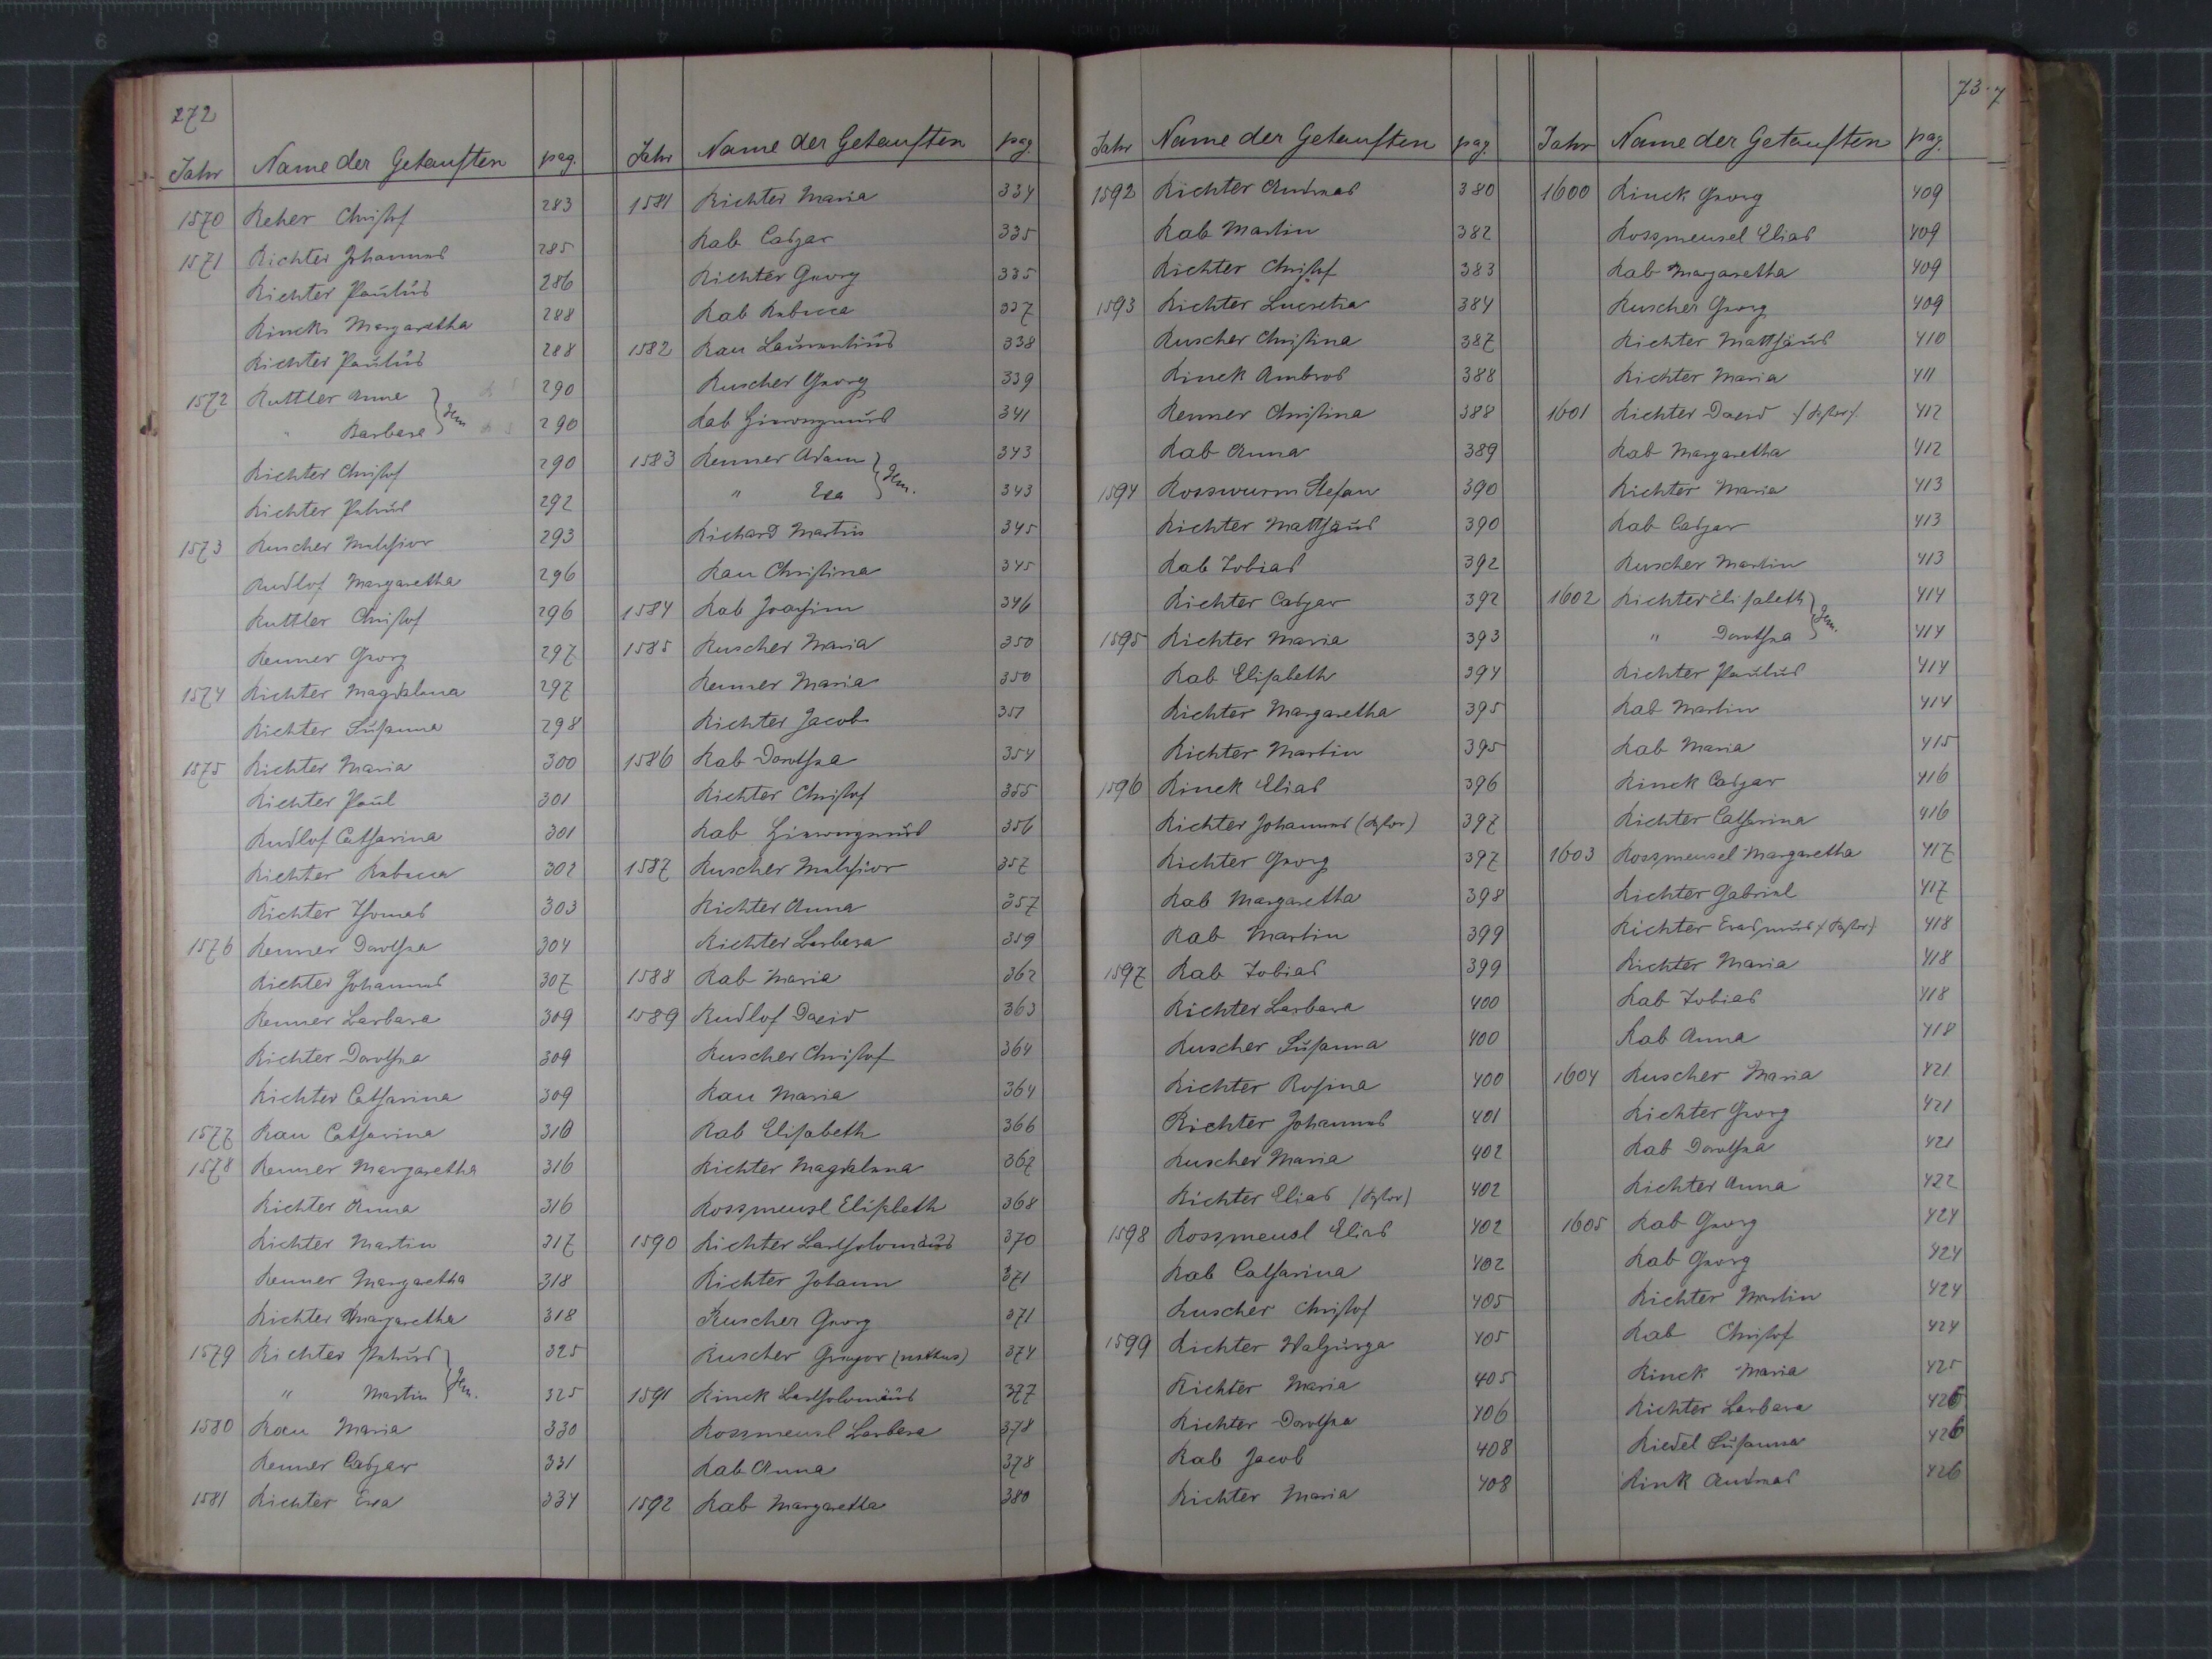 272
Jahr Name der Getauften pag.
1570 Reher Christof 283
1571 Richter Johannes 285
Richter Paulus 286
Rincks Margaretha 288
Richter Paulus 288
1572 Ruttler Anna 290
" Barbara } Gem 290
Richter Christof 290
Richter Petrus 292
1573 Ruscher Melchior 293
Rudlof Margaretha 296
Ruttler Christof 296
Renner Georg 297
1574 Richter Magdalena 297
Richter Susanna 298
1575 Richter Maria 300
Richter Paul 301
Rudlof Catharina 301
Richter Rebecca 302
Richter Thomas 303
1576 Renner Dorothea 304
Richter Johannes 307
Renner Barbara 309
Richter Dorothea 309
Richter Catharina 309
1577 Rau Catharina 310
1578 Renner Margaretha 316
Richter Anna 316
Richter Martin 317
Renner Margaretha 318
Richter Margaretha 318
1579 Richter Petrus 325
" Martin } Gem. 325
1580 Rau Maria 330
Renner Caspar 331
1581 Richter Eva 334
Jahr Name der Getauften pag.
1581 Richter Maria 334
Rab Caspar 335
Richter Georg 335
Rab Rebecca 337
1582 Rau Laurentius 338
Ruscher Georg 339
Rab Hieronymus 341
1583 Renner Adam 343
" Eva } Gem. 343
Richard Martin 345
Rau Christina 345
1584 Rab Joachim 346
1585 Ruscher Maria 350
Renner Maria 350
Richter Jacob 351
1586 Rab Dorothea 354
Richter Christof 355
Rab Hieronymus 356
1587 Ruscher Melchior 357
Richter Anna 357
Richter Barbara 359
1588 Rab Maria 362
1589 Rudlof David 363
Ruscher Christof 364
Rau Maria 364
Rab Elisabeth 366
Richter Magdalena 367
Rossmeusl Elisabeth 368
1590 Richter Bartholomäus 370
Richter Johann 371
Ruscher Georg 371
Ruscher Gregor 374
1591 Rinck Bartholomäus 377
Rossmeusl Barbara 378
Rab Anna 378
1592 Rab Margaretha 380
Jahr Name der Getauften pag.
1592 Richter Andreas 380
Rab Martin 382
Richter Christof 383
1593 Richter Lucretia 384
Ruscher Christina 387
Rinck Ambros 388
Renner Christina 388
Rab Anna 389
1594 Rosswurm Stefan 390
Richter Matthäus 390
Rab Tobias 392
Richter Caspar 392
1595 Richter Maria 393
Rab Elisabeth 394
Richter Margaretha 395
Richter Martin 395
1596 Rinck Elias 396
Richter Johannes 397
Richter Georg 397
Rab Margaretha 398
Rab Martin 399
1597 Rab Tobias 399
Richter Barbara 400
Ruscher Susanna 400
Richter Rosina 400
Richter Johannes 401
Ruscher Maria 402
Richter Elias 402
1598 Rossmeusl Elias 402
Rab Catharina 402
Ruscher Christof 405
1599 Richter Walpurga 405
Richter Maria 405
Richter Dorothea 406
Rab Jacob 408
Richter Maria 408
73
Jahr Name der Getauften pag.
1600 Rinck Georg 409
Rossmeusel Elias 409
Rab Margaretha 409
Ruscher Georg 409
Richter Matthäus 410
Richter Maria 411
1601 Richter David 412
Rab Margaretha 412
Richter Maria 413
Rab Caspar 413
Ruscher Martin 413
1602 Richter Elisabeth 414
" Dorothea } Gem. 414
Richter Paulus 414
Rab Martin 414
Rab Maria 415
Rinck Caspar 416
Richter Catharina 416
1603 Rossmeusel Margaretha 417
Richter Gabriel 417
Richter Erasmus 418
Richter Maria 418
Rab Tobias 418
Rab Anna 418
1604 Ruscher Maria 421
Richter Georg 421
Rab Dorothea 421
Richter Anna 422
1605 Rab Georg 424
Rab Georg 424
Richter Martin 424
Rab Christof 424
Rinck Maria 425
Richter Barbara 426
Riedel Susanna 426
Rink Andreas 426